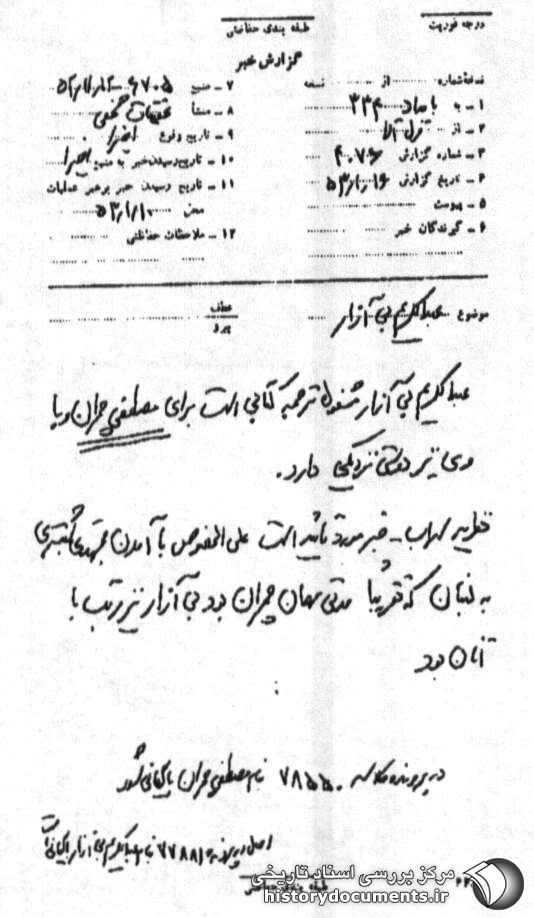 درجه فوریت
طبقه بندی حفاظتی
گزارش خبر
نسخه شماره از نسخه
۱ - به باماد ۳۳۴
۲ - از
۳ - شماره گزارش ۴۰۷۶
۴ - تاریخ گزارش ۵۳/۱/۱۶
۵ - پیوست
۶ - گیرندگان خبر
۷ - منبع ۶۷۰۵
۸ - منشأ
۹ - تاریخ وقوع اخیرا
۱۰ - تاریخ رسیدن خبر به منبع اخیرا
۱۱ - تاریخ رسیدن خبر برهبر عملیات
۵۳/۱/۱۰
۱۲ - ملاحظات حفاظتی
موضوع عبدالکریم بی آزار
عطف
پیرو
عبدالکریم بی آزار مشغول ترجمه کتابی است برای مصطفی چمران و با
وی نیز دوستی نزدیکی دارد.
نظریه سهراب - خبر مورد تائید است علی الخصوص با آمدن مجتهدی شبستری
به لبنان که تقریبا مدتی مهمان چمران بود بی آزار نیز مرتب با
آنان بود
در پرونده کلاسه ۷۸۵۵۰ بنام مصطفی چمران بایگانی شود
اصل در پرونده ۷۷۸۸۱ بنام عبدالکریم بی آزار بایگانی است
طبقه بندی حفاظتی
مرکز بررسی اسناد تاریخی
historydocuments.ir